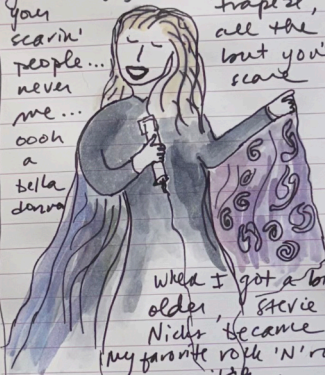 your
scarin'
people...
never
me...
oooh
a
bella
donna
trapeze,
all the
but you'
scare
when I got a
older, Stevie
Nicks became
my favorite rock 'N' ro